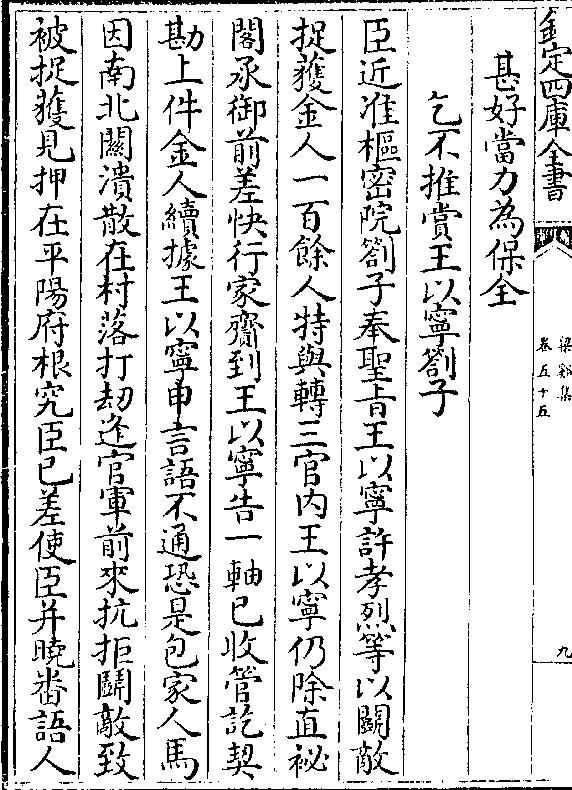 欽定四庫全書
梁谿集
卷五十五
九
甚好當力為保全
乞不推賞王以寧劄子
臣近准樞密院劄子奉聖旨王以寧許孝烈等以鬭敵
捉獲金人一百餘人特與轉三官内王以寧仍除直祕
閣承御前差快行家齎到王以寧告一軸已收管訖契
勘上件金人續據王以寧申言語不通恐是包家人馬
因南北關潰散在村落打刼逢官軍前來抗拒鬭敵致
被捉獲見押在平陽府根究臣已差使臣并曉番語人